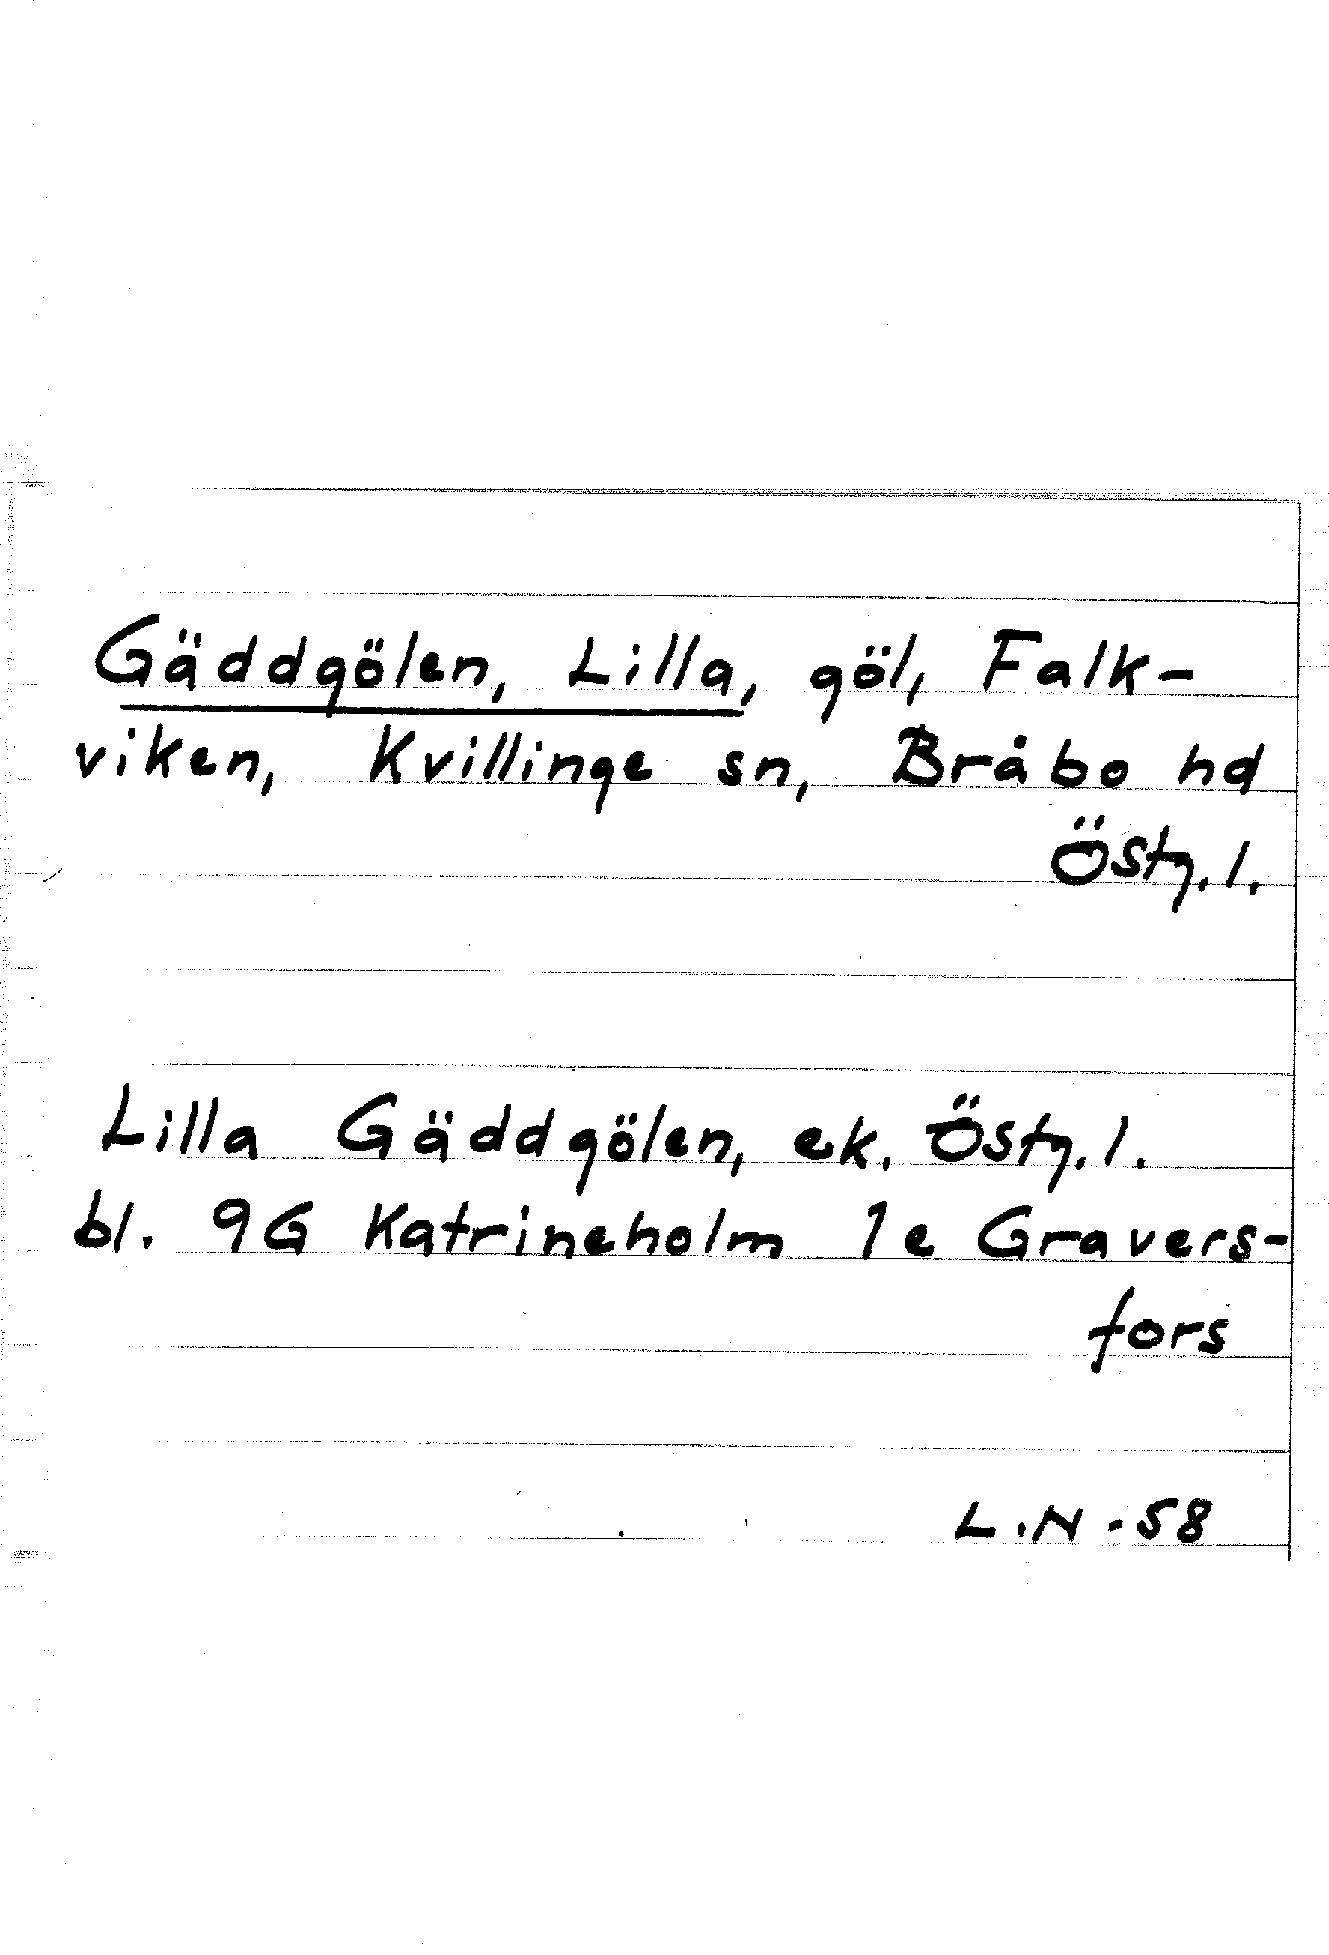 Gäddgölen, Lilla, göl, Falk-
viken, Kvillinge sn, Bråbo hd
Östg. l.
Lilla Gäddgölen, ek. Östg. l.
bl. 9G Katrineholm 1e Gravers-
fors
L.N.-58